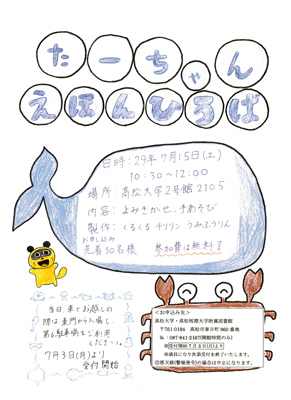 たーちゃん
えほんひろば
日時:29年7月15日(土)
10:30~12:00
場所:高松大学2号館2105
内容:よみきかせ、手あそび
製作:くるくるチリリン うみふうりん
お申し込み
先着50名様 参加費は無料!
当日、車でお越しの
際は東門から入場し、
第6駐車場をご利用
ください。
7月3日(月)より
受付開始
<お申込み先>
高松大学・高松短期大学附属図書館
〒761-0194 高松市春日町960番地
℡:087-841-3167(開館時間のみ)
※受付開始7月3日(月)より
※満員になり次第受付を終了いたします。
◎悪天候(警報発令)の場合は中止になります。